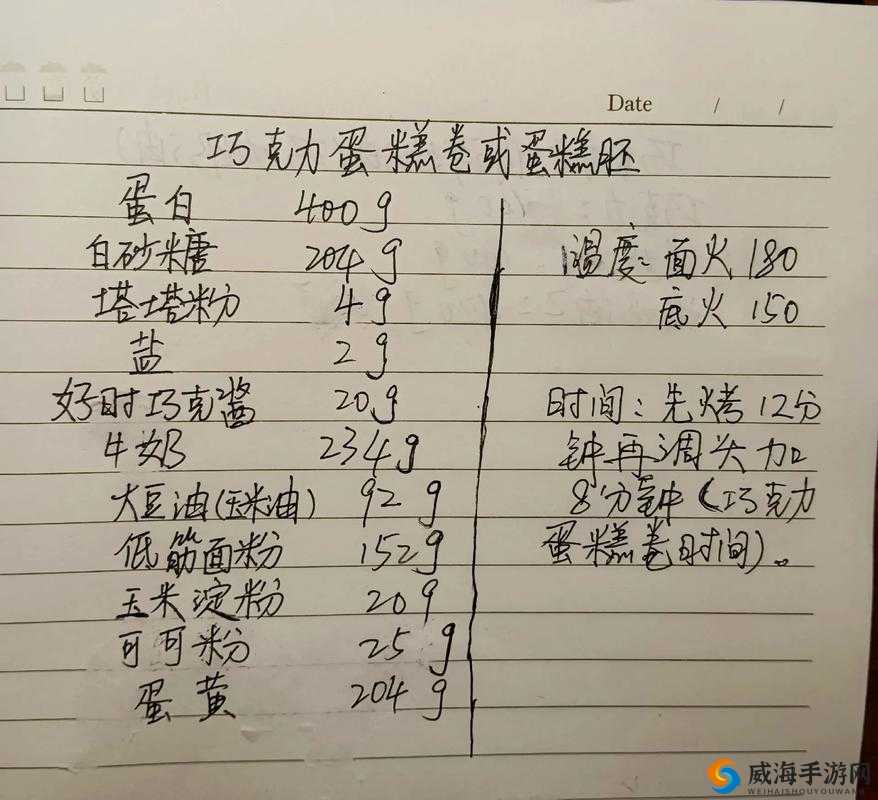 Date / /
巧克力蛋糕卷或蛋糕胚
蛋白 400g
白砂糖 204g
塔塔粉 4g
盐 2g
好时巧克酱 20g
牛奶 234g
大豆油(玉米油) 92g
低筋面粉 152g
玉米淀粉 20g
可可粉 25g
蛋黄 204g
温度: 面火 180
底火 150
时间: 先烤12分
钟再调头加
8分钟(巧克力
蛋糕卷时间)。
威海手游网
WEIHAISHOUYOUWANG